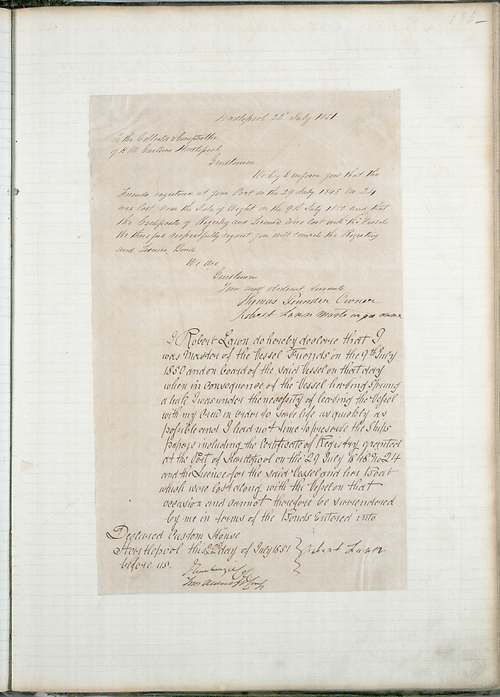 Hartlepool 22d July 1851
To the Collector & Comptroller
of H.M. Customs Hartlepool
Gentlemen
We beg to inform you that the
Friends registered at your Port on the 29 July 1848 No 24
was lost near the Isle of Wight on the 9th July 1850 and that
the Certificate of Registry and Licence were lost with the Vessel
We therefore respectfully request you will cancel the Registry
and Licence Bond
We are
Gentlemen
Your most obedient servants
Thomas Owner
Robert Lawn Master
I Robert Lawn do hereby declare that I
was Master of the Vessel Friends on the 9th July
1850 and on board of the said Vessel on that day
when in consequence of the Vessel having Sprung
a leak I was under the necessity of leaving the Vessel
with my Crew in order to save life as quickly as
possible and I had not time to preserve the Ships
papers including the Certificate of Registry granted
at the Port of Hartlepool on the 29 July 1848 No 24
and the Licence for the said Vessel and her Boat
which were lost along with the Vessel on that
occasion and cannot therefore be surrendered
by me in terms of the Bonds Entered into
Declared Custom House
Hartlepool this 22d day of July 1851 Robert Lawn
before us